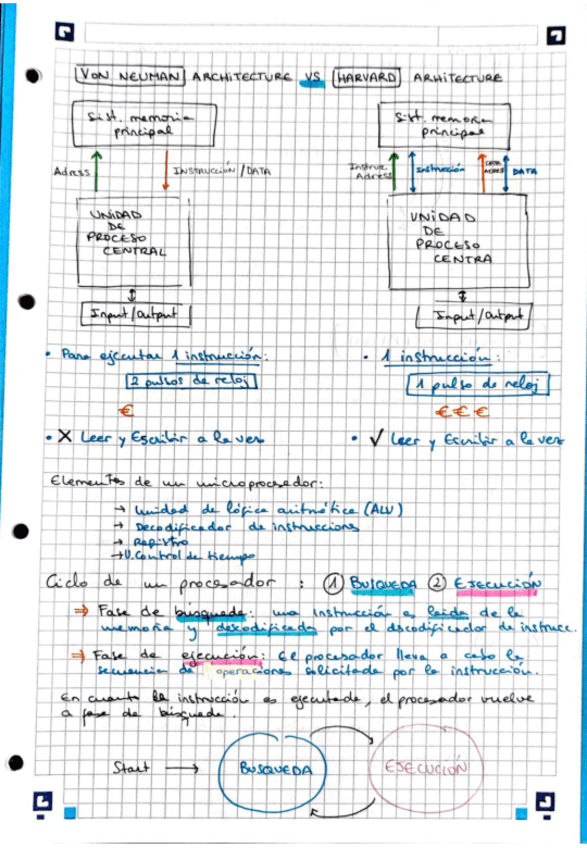 VON NEUMAN ARCHITECTURE VS HARVARD ARHITECTURE
Sist. memoria
principal
Adress
INSTRUCCIÓN / DATA
UNIDAD
DE
PROCESO
CENTRAL
Input/Output
Sist. memoria
principal
Instruc.
Adress
Instrucción
DATA
ADRESS
DATA
UNIDAD
DE
PROCESO
CENTRA
Input/Output
• Para ejecutar 1 instrucción:
2 pulsos de reloj
€
• X Leer y Escribir a la vez
• 1 instrucción:
1 pulso de reloj
€€€
• ✓ Leer y Escribir a la vez
Elementos de un microprocesador:
→ Unidad de lógica aritmética (ALU)
→ Decodificador de instruccions
→ Registro
→ U.Control de tiempo
Ciclo de un procesador : ① BUSQUEDA ② EJECUCIÓN
⇒ Fase de búsqueda: una instrucción es leída de la
memoria y descodificada por el dscodificador de instrucc.
⇒ Fase de ejecución: el procesador lleva a cabo la
secuencia de operaciones solicitada por la instrucción.
En cuanto la instrucción es ejecutada, el procesador vuelve
a fase de búsqueda.
Start → BUSQUEDA EJECUCIÓN